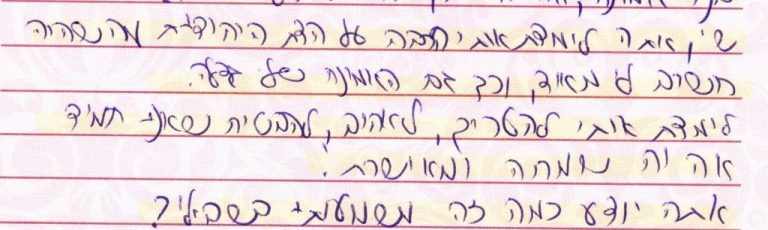 אתה לימדת אותי הרבה על הדת היהודית מה שהיה
חשוב לי מאוד, וכך גם האמונה שלי גדלה.
לימדת אותי להעריך, לאהוב, להבטיח שאני תמיד
אהיה שמחה ומאושרת!
אתה יודע כמה זה משמעותי בשבילי?